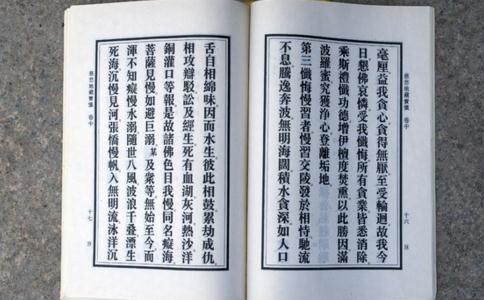 慈悲地藏寶懺 卷中
十六
毫厘益我貪心貪得無厭至受輪迴故我今
日懇佛哀憐受我懺悔所有貪業皆悉消除
乘斯禮懺功德增伊檀度焚熏以此勝因滿
波羅蜜究獲淨心登離垢地
第三懺悔慢習者慢習交陵發於相恃馳流
不息騰逸奔波無明海闊積水貪深如人口
舌自相綿味因而水生彼此相鼓累劫成仇
相攻辯駁訟及經生死有血湖灰河熱沙洋
銅灌口等報是故諸佛色目我慢同名癡海
菩薩見慢如避巨溺某及衆等無始至今而
渾不知癡慢水溺隨世八風波浪千叠漂生
死海沉慢見河張憍慢帆入無明流泳洋沉
慈悲地藏寶懺 卷中
十七